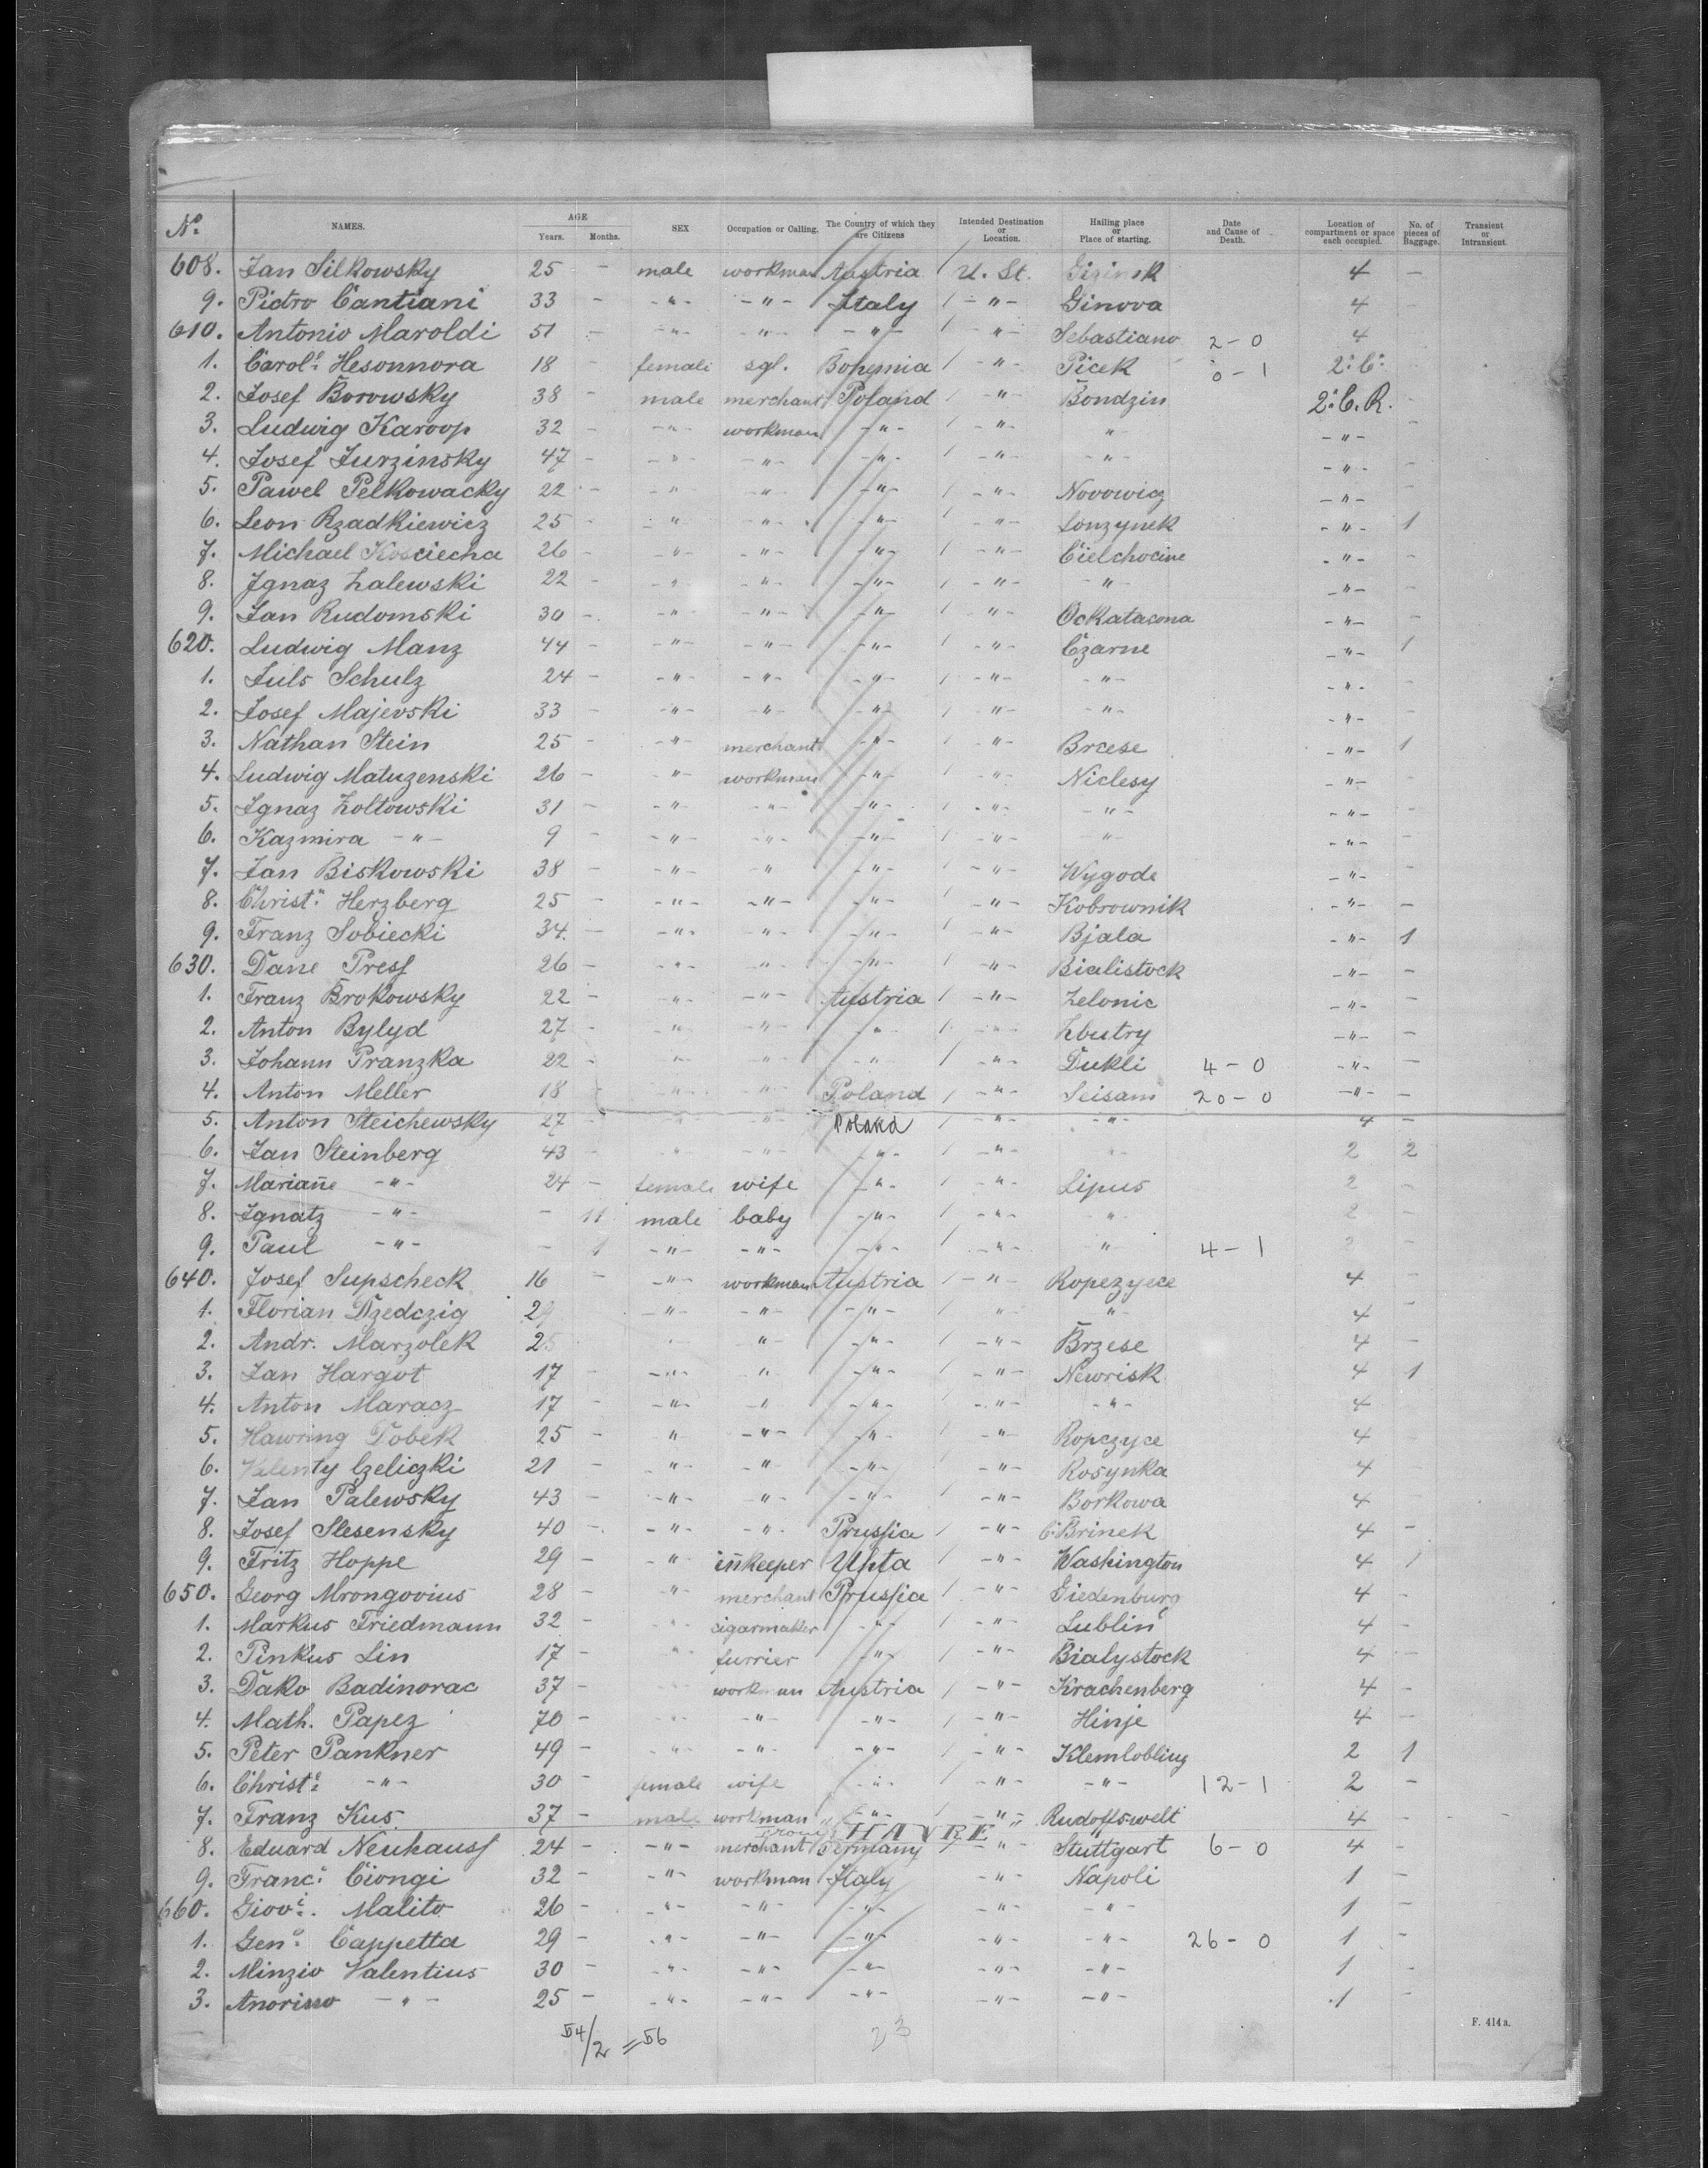 No. NAMES. AGE Years. Months. SEX Occupation or Calling. The Country of which they are Citizens Intended Destination or Location. Hailing place or Place of starting. Date and Cause of Death. Location of compartment or space each occupied. No. of pieces of Baggage. Transient or Intransient.
608. Jan Silkowsky 25 - male workman Austria U. St. 4 -
9. Pietro Cantiani 33 - -"- -"- Italy / -"- Ginova 4 -
610. Antonio Maroldi 51 - -"- -"- -"- / -"- Sebastiano 2-0 4
1. Carol. Hesonnora 18 - female sgl. Bohemia / -"- Picek 0-1 2. C.
2. Josef Borowsky 38 - male merchant Poland / -"- Bondzin 2. C. R. -
3. Ludwig Karoop 32 - -"- workman -"- / -"- " -"- -
4. Josef Jurzinsky 47 - -"- -"- -"- / -"- -"- -"- -
5. Pawel Pelkowacky 22 - -"- -"- -"- / -"- Novowicz -"- -
6. Leon Rzadkiewicz 25 - -"- -"- -"- / -"- Lonzynek -"- 1
7. Michael Kosciecha 26 - -"- -"- -"- / -"- Cielchocine -"- -
8. Ignaz Zalewski 22 - -"- -"- -"- / -"- -"- -"- -
9. Jan Rudomski 30 - -"- -"- -"- / -"- Ockatasona -"- -
620. Ludwig Manz 44 - -"- -"- -"- / -"- Czarne -"- 1
1. Juls Schulz 24 - -"- -"- -"- / -"- -"- -"- -
2. Josef Majevski 33 - -"- -"- -"- / -"- -"- -"- -
3. Nathan Stein 25 - -"- merchant -"- / -"- Brcese -"- 1
4. Ludwig Matuzenski 26 - -"- workman -"- / -"- Niclesy -"- -
5. Ignaz Zoltowski 31 - -"- -"- -"- / -"- -"- -"- -
6. Kazmira -"- 9 - -"- -"- -"- / -"- -"- -"- -
7. Jan Biskowski 38 - -"- " -"- -"- Wygode -"- -
8. Christ. Herzberg 25 - -"- -"- -"- / -"- Kobrownik -"- -
9. Franz Sobiecki 34. - -"- -"- -"- / -"- Bjala -"- 1
630. Dane Press 26 - -"- -"- -"- / -"- Bialistock -"- -
1. Franz Brokowsky 22 - -"- -"- Austria / -"- Zelonic -"- -
2. Anton Bylyd 27 - -"- -"- " / -"- Zbutry -"- -
3. Johann Pranzka 22 - -"- -"- " / -"- Dukli 4-0 -"- -
4. Anton Meller 18 -"- -"- Poland / -"- Seisam 20-0 -"- -
5. Anton Steichewsky 27 - " -"- Poland / -"- -"- 4 -
6. Jan Steinberg 43 - -"- -"- -"- / -"- -"- 2 2
7. Marianne -"- 24 - female wife -"- / -"- Lipus 2 -
8. Ignatz -"- - 11 male baby -"- / -"- " 2 -
9. Paul -"- - -"- -"- -"- / -"- " 4-1 -
640. Josef Supscheck 16 - -"- workman Austria / -"- Ropezyece 4 -
1. Florian Dzedczig 29 -"- -"- -"- / " -"- 4 -
2. Andr. Marzolek 25 -"- " -"- / -"- Brzese 4 -
3. Jan Hargot 17 - -"- " -"- / -"- Newrisk 4 1
4. Anton Maracz 17 - -"- " -"- / -"- -"- 4
5. Hawring Dobek 25 - " -"- -"- / -"- Ropczyce 4
6. Valenty Czeliczki 21 - -"- -"- -"- -"- Rosynka 4
7. Jan Palewsky 43 - -"- -"- -"- -"- Borkowa 4
8. Josef Slesensky 40 - -"- -"- Prussia / -"- C. Brinek 4 -
9. Fritz Hoppe 29 - -"- innkeeper / -"- Washington 4 1
650. Georg Mrongovius 28 - -"- merchant Prussia / -"- Giedenburg 4 -
1. Markus Friedmann 32 - " cigarmaker -"- / -"- Lublin 4 -
2. Pinkus Lin 17 - " furrier -"- / -"- Bialystock 4 -
3. Dako Badinorac 37 - workman Austria / -"- Krachenberg 4 -
4. Math. Papez 70 - -"- -"- -"- / -"- Hinje 4 -
5. Peter Pankner 49 - -"- -"- -"- / -"- Klemlobling 2 1
6. Christ. -"- 30 - female wife -"- / -"- -"- 12-1 2 -
7. Franz Kus. 37 - male workman -"- / -"- Rudoffswelt 4 -
from HAVRE
8. Eduard Neuhauss 24 - -"- merchant Germany / -"- Stuttgart 6-0 4 -
9. Franc. Ciongi 32 - -"- workman Italy -"- Napoli 1 -
660. Giov. Malito 26 - -"- -"- -"- -"- -"- 1 -
1. Gen. Cappetta 29 - -"- -"- -"- -"- -"- 26-0 1 -
2. Minzio Valentius 30 - -"- -"- -"- -"- -"- 1 -
3. Anorisso -"- 25 - -"- -"- -"- -"- -"- 1 -
54/2 = 56 23
F. 414 a.